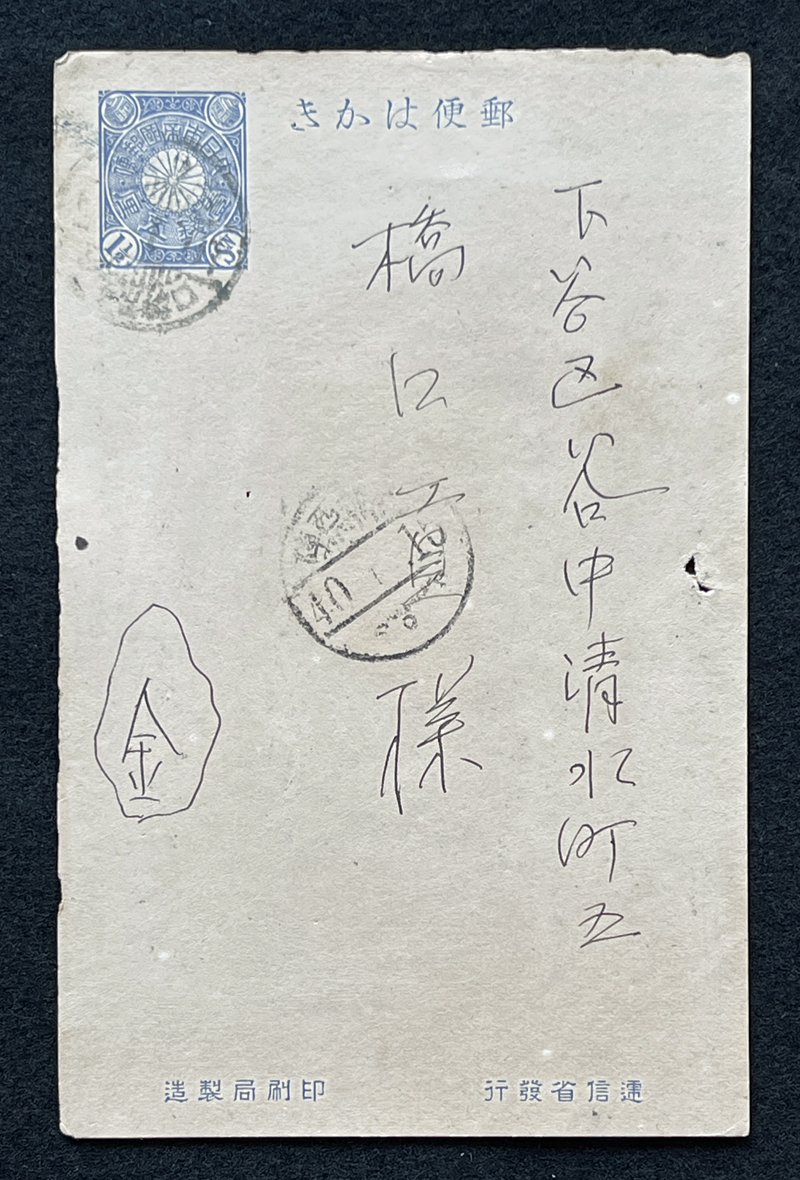 郵便はかき
大日本帝國郵便
壹錢五厘
1½ Sⁿ
下谷区谷中清水町五
橋口貢様
40
金
逓信省發行
印刷局製造